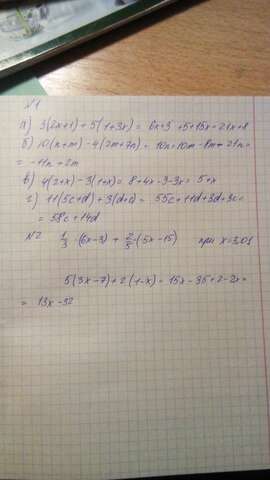 №1
а) 3(2x+1)+5(1+3x)= 6x+3+5+15x=21x+8
б) 10(n+m)-4(2m+7n)= 10n+10m-8m+21n=
= -11n+2m
в) 4(2+x)-3(1+x)= 8+4x-3-3x=5+x
г) 11(5c+d)+3(d+c)= 55c+11d+3d+3c=
= 58c+14d
№2 1/3·(6x-3)+2/5·(5x-15) при x=3,01
5(3x-7)+2(1-x)=15x-35+2-2x=
= 13x-32